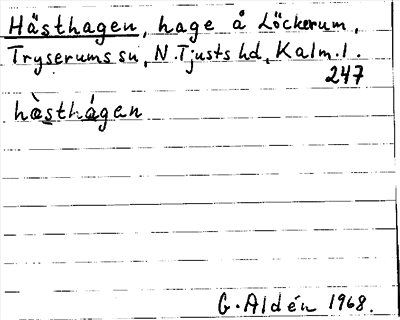 Hästhagen, hage å Löckerum,
Tryserums sn, N. Tjusts hd, Kalm. l.
247
hàsthágen
G. Aldén 1968.